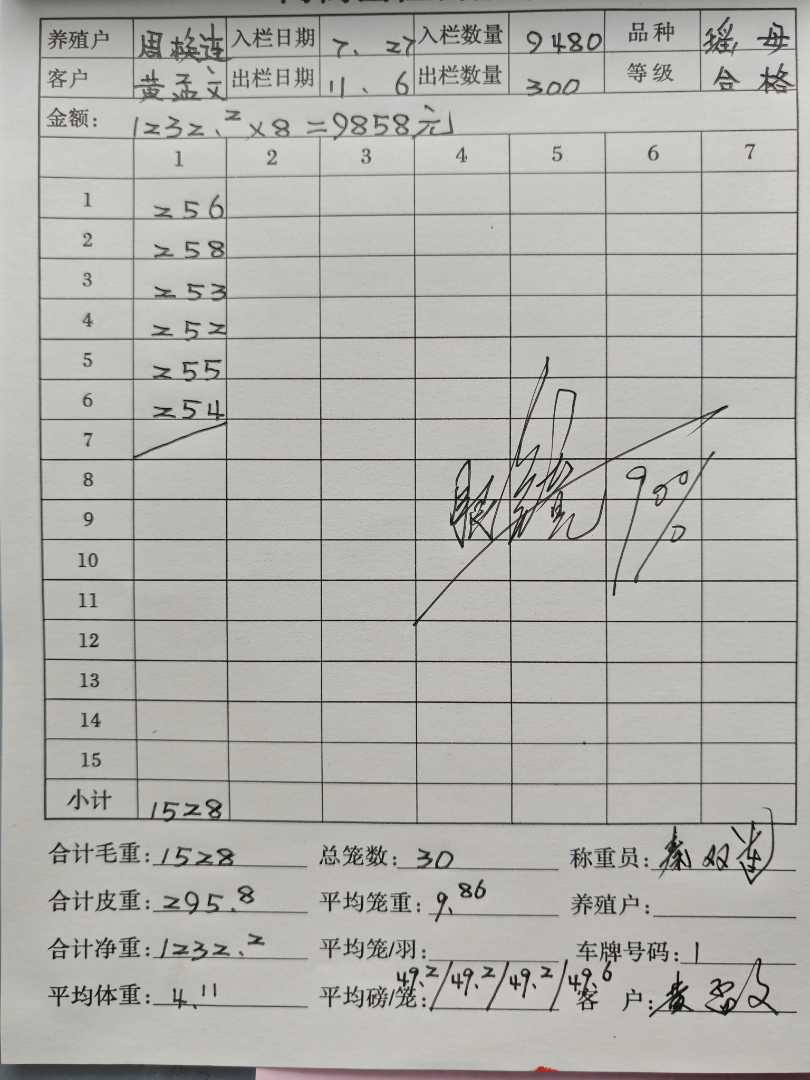 养殖户 周焕连 入栏日期 7、27 入栏数量 9480 品种 瑶母
客户 黄孟文 出栏日期 11、6 出栏数量 300 等级 合格
金额: 1232.2×8=9858元
1 2 3 4 5 6 7
1 256
2 258
3 253
4 252
5 255
6 254
7
8
9
10
11
12
13
14
15
小计 1528
合计毛重: 1528 总笼数: 30 称重员:
合计皮重: 295.8 平均笼重: 9.86 养殖户:
合计净重: 1232.2 平均笼/羽: 车牌号码: 1
平均体重: 4.11 平均磅/笼: 49.2/49.2/49.2/49.6 客 户: 黄孟文